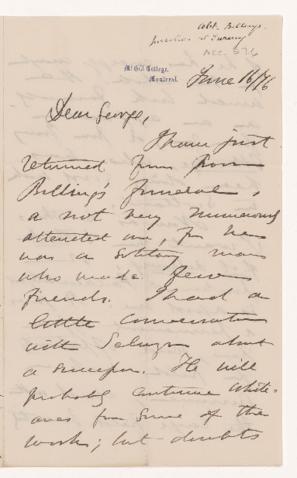 Abt. Billings.
McGill College,
Montreal.
June 16/76
Dear George,
I have just
returned from poor
Billing's funeral,
a not very numerously
attended one, for he
was a solitary man
who made few
friends. I had a
little conversation
with Selwyn about
a successor. He will
probably continue White-
aves for some of the
work; but doubts